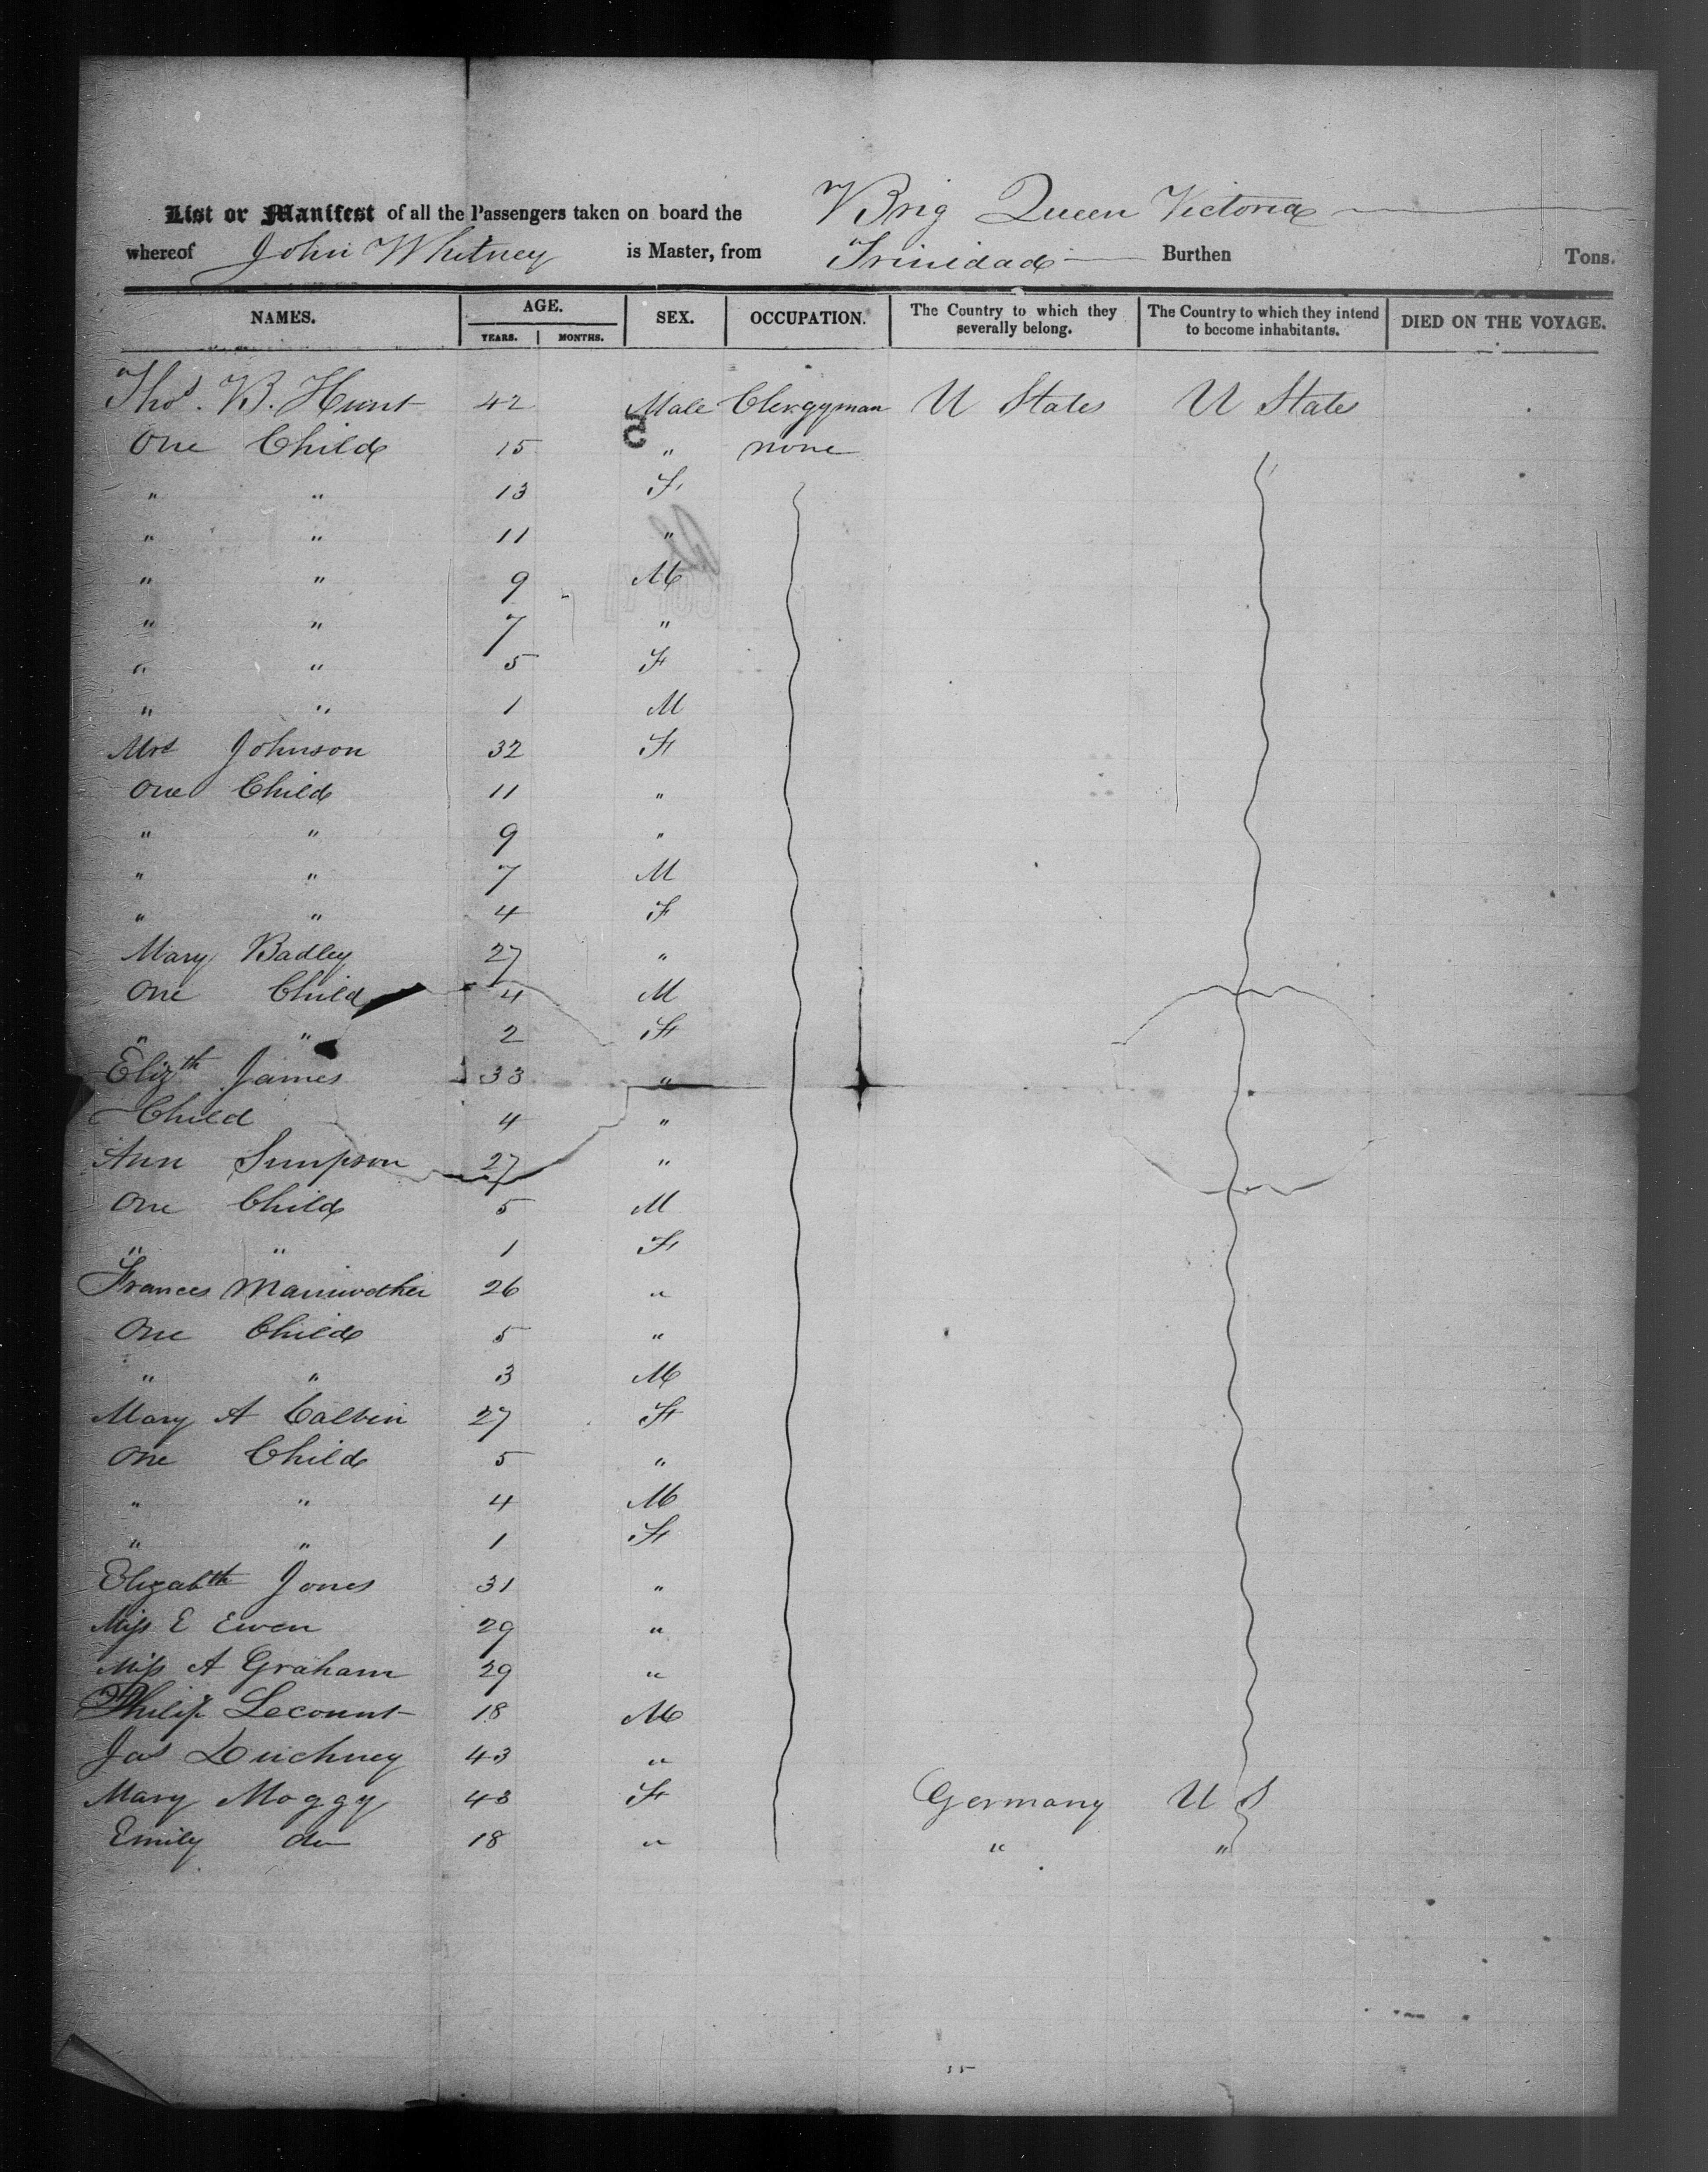 List or Manifest of all the Passengers taken on board the Brig Queen Victoria
whereof John Whitney is Master, from Trinidad Burthen Tons.
NAMES. AGE. SEX. OCCUPATION. The Country to which they severally belong. The Country to which they intend to become inhabitants. DIED ON THE VOYAGE.
YEARS. MONTHS.
Thos. B. Hunt 42 Male Clergyman U States U States
One Child 15 " none
" " 13 F.
" " 11 "
" " 9 M
" " 7 "
" " 5 F
" " 1 M
Mrs Johnson 32 F
One Child 11 "
" " 9 "
" " 7 M
" " 4 F
Mary Badley 27 "
One Child 4 M
" " 2 F
Elizth James 33 "
Child 4 "
Ann Simpson 27 "
One Child 5 M
" " 1 F
Frances 26 "
One Child 5 "
" " 3 M
Mary A Calvin 27 F
One Child 5 "
" " 4 M
" " 1 F
Elizabth Jones 31 "
Miss E Ewen 29 "
Miss A Graham 29 "
Philip Lecount 18 M
Jas 43 "
Mary Moggy 43 F Germany U S
Emily do 18 " " "